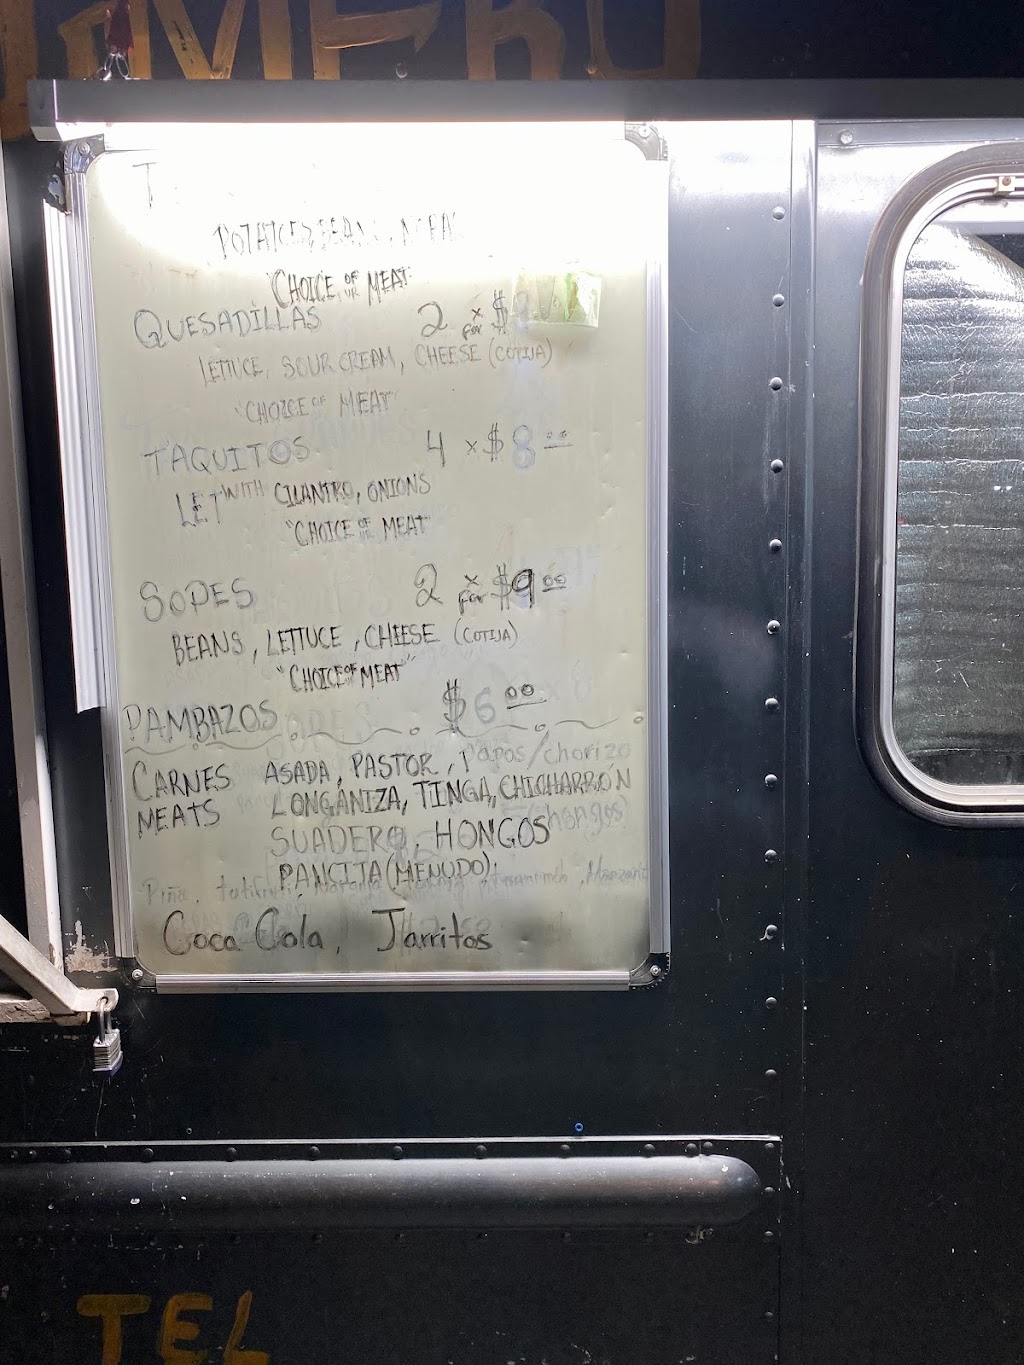 POTATOES, BEANS, MEAT
"CHOICE OF MEAT"
QUESADILLAS 2 x for $
LETTUCE, SOUR CREAM, CHEESE (COTIJA)
"CHOICE OF MEAT"
TAQUITOS 4 x $8.00
LET WITH CILANTRO, ONIONS
"CHOICE OF MEAT"
SOPES 2 x for $9.00
BEANS, LETTUCE, CHEESE (COTIJA)
"CHOICE OF MEAT"
PAMBAZOS $6.00
CARNES ASADA, PASTOR, papas/chorizo
MEATS LONGANIZA, TINGA, CHICHARRON
(hongos)
SUADERO, HONGOS
PANCITA (MENUDO)
Piña, tutifruti, Naranja, tamarindo, Manzana
Coca Cola, Jarritos
TEL